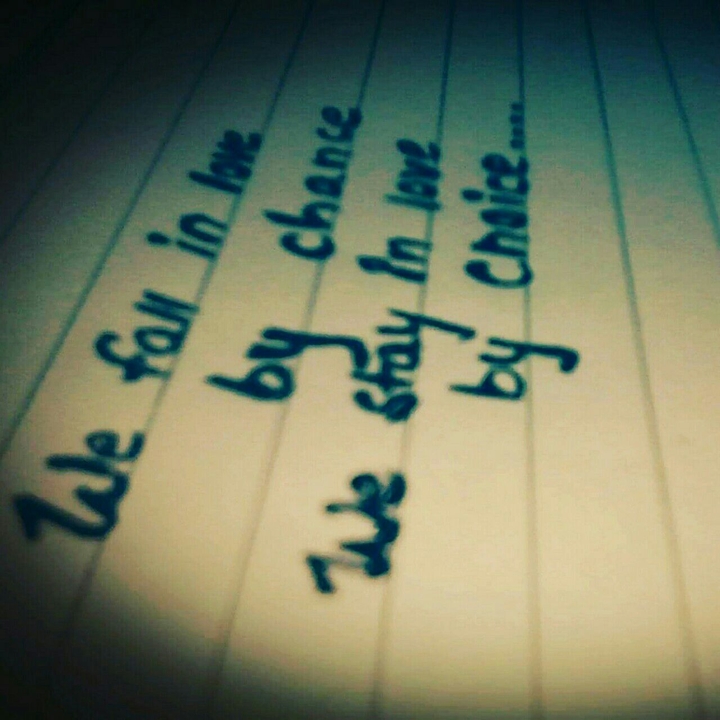 We fall in love
by chance
We stay In love
by Choice....